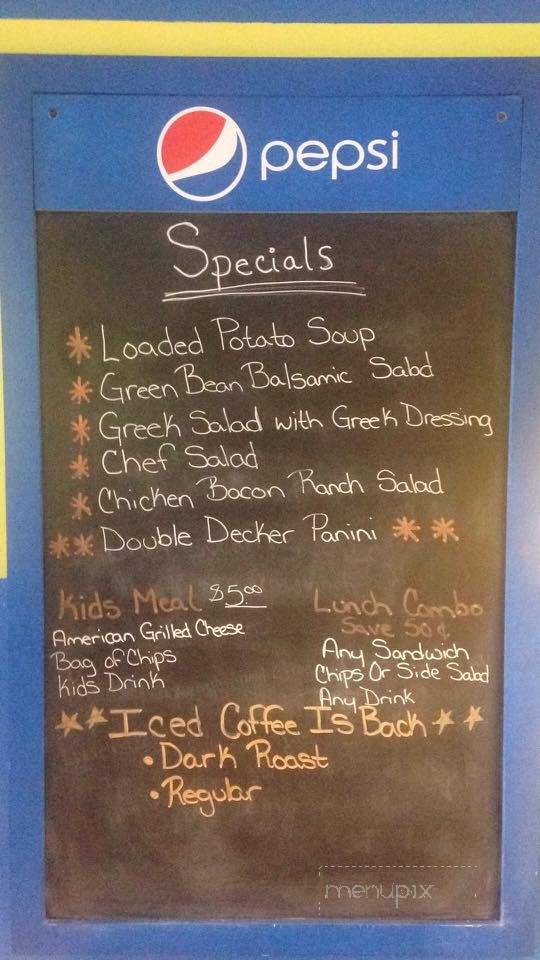 pepsi
Specials
* Loaded Potato Soup
* Green Bean Balsamic Salad
* Greek Salad with Greek Dressing
* Chef Salad
* Chicken Bacon Ranch Salad
** Double Decker Panini * *
Kids Meal $5.00
American Grilled Cheese
Bag of Chips
Kids Drink
Lunch Combo
Save 50¢
Any Sandwich
Chips Or Side Salad
Any Drink
★★ Iced Coffee Is Back ★★
• Dark Roast
• Regular
menupix